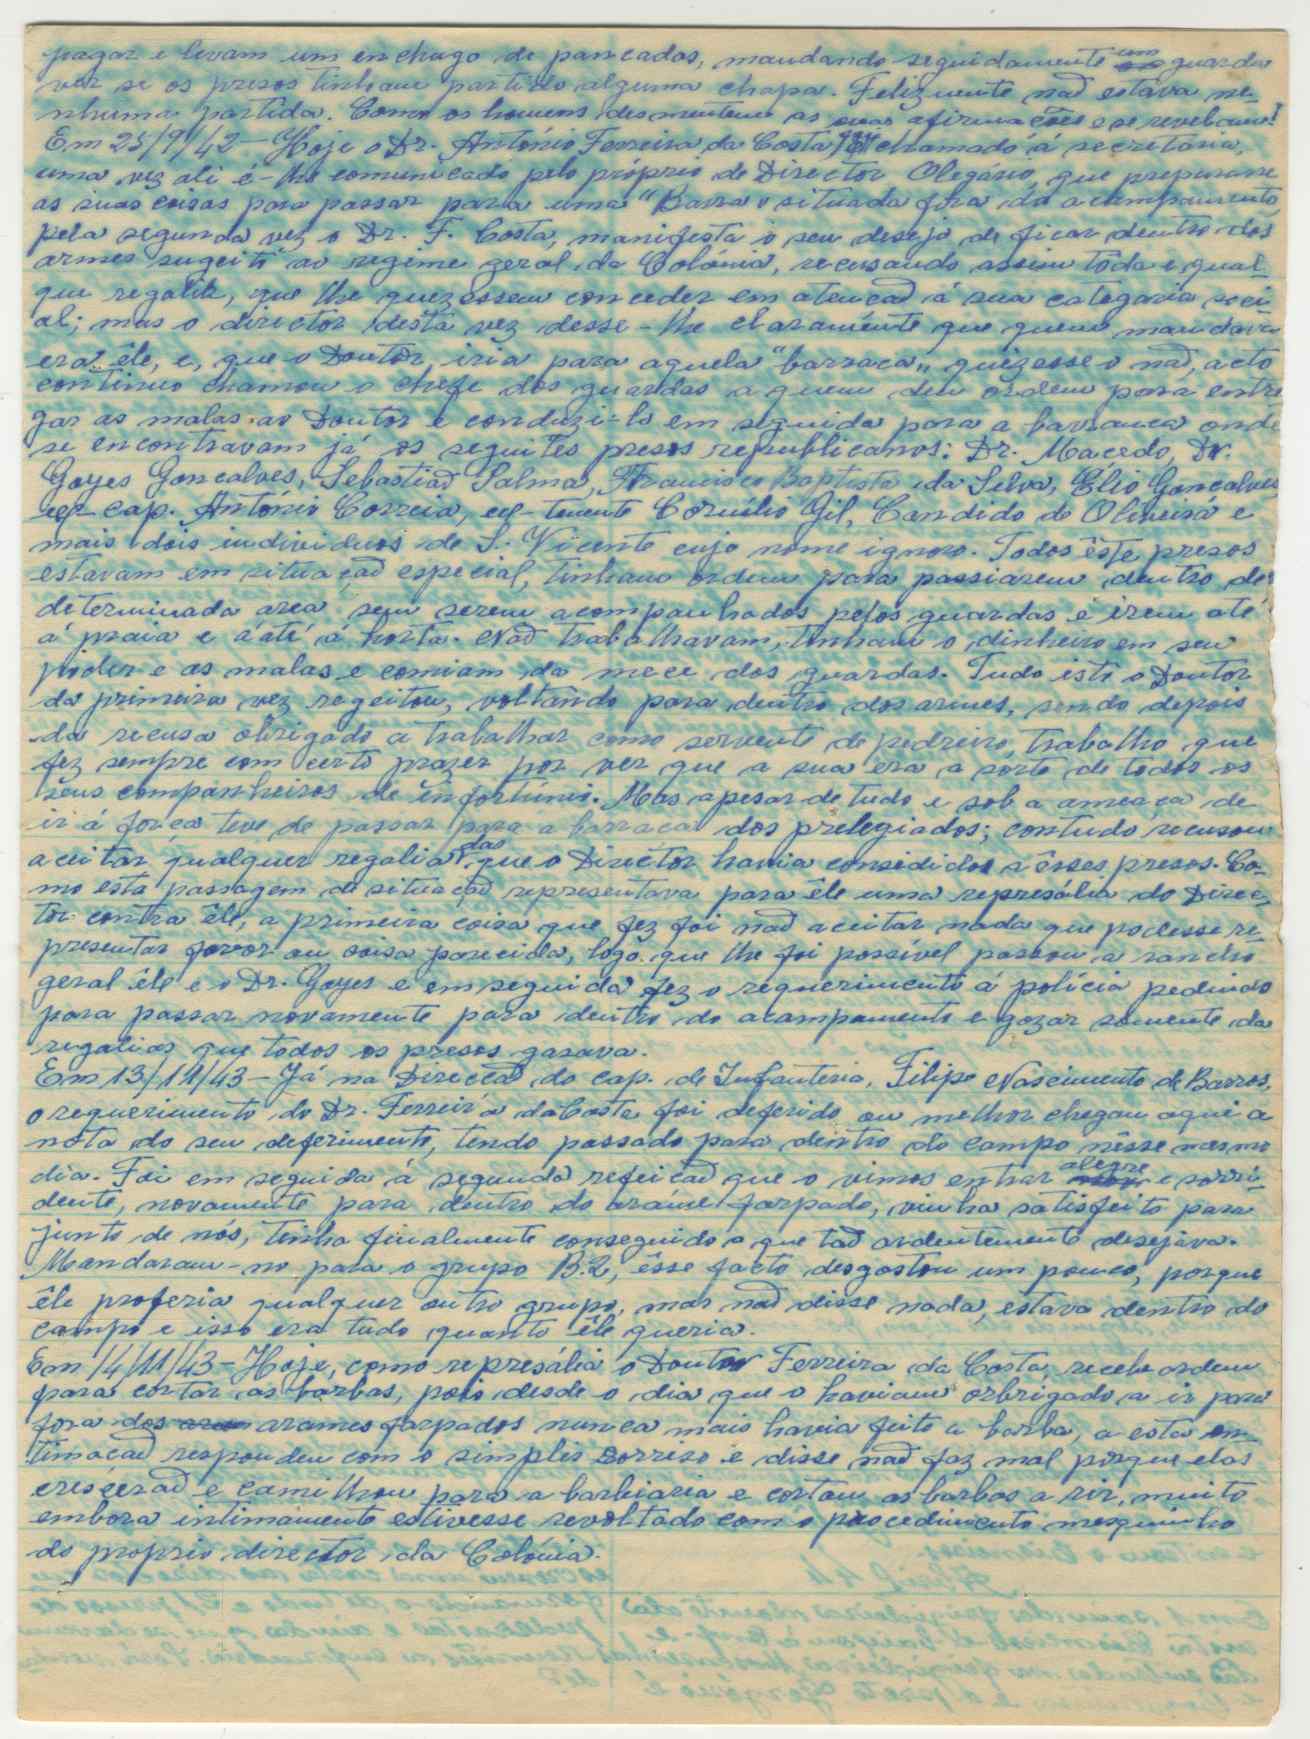 pagar e levam um enchugo de pancadas, mandando seguidamente um guarda
ver se os presos tinham partido alguma chapa. Felizmente nad estava ne-
nhuma partida. Como os homens desmentem as suas afirmações e se revelam!
Em 25/9/42 - Hoje o Dr. António Ferreira da Costa, foi chamado á secretária,
uma vez ali é-lhe comunicado pelo próprio de Director Olegário, que preparasse
as suas coisas para passar para uma "Barra" situada fora do acampamento,
pela segunda vez o Dr. F. Costa, manifesta o seu desejo de ficar dentro dos
armes sugeito ao regime geral da Colónia, recusando assem tôda e qual-
quer regalia, que lhe quezessem conceder em atençad á sua categoria soci-
al; mas o director desta vez desse-lhe claramente que quem mandava
era êle, e, que o Doutor iria para aquela "barraca", quezesse o nad, acto
continuo chamou o chefe dos guardas a quem deu ordem para entre
gar as malas ao Doutor e conduzi-lo em seguida para a barraca onde
se encontravam já os seguites presos republicanos: Dr. Macedo, Dr.
Goyes Goncalves, Sebastiad Palma, Francisco Baptista da Selva, Élio Goncalves
cap. António Correia, tenente Cornélio Gil, Candido de Oliveira e
mais dois individuos de S. Vicente cujo nome ignoro. Todos êste presos
estavam em situaçad especial, tinham ordem para passiarem dentro de
determinada area sem serem acompanhados pelos guardas e irem até
á praia e á até á horta. Nad trabalhavam, tinham o dinheiro em seu
poder e as malas e comiam da mece dos guardas. Tudo iste o Doutor
da primeira vez regeitou, voltando para dentro dos armes, sendo depois
da recusa obrigado a trabalhar como servente de pedreiro, trabalho que
fez sempre com certo prazer por ver que a sua era a sorte de todos os
seus companheiros de enfortúnio. Mas apesar de tudo e sob a ameaça de
ir á força teve de passar para a barraca dos prelegiados; contudo recusou
aceitar qualquer regalia das que o Director havia consedidos a êsses presos. Co-
mo esta passagem de situaçad representava para êle uma represália do Direc-
tor contra êle, a primeira coisa que fez foi nad aceitar nada que podesse re-
presentar favor ou coisa parecida, logo que lhe foi possível passou a rancho
geral êle e o Dr. Goyes e em seguida fez o requerimento á polícia pedindo
para passar novamente para dentro do acampamento e gozar somente da
regalias que todos os presos gasava.
Em 13/11/43 - Já na Direcçad do cap. de Infanteria, Filipe Nascimento de Barros,
o requerimento do Dr. Ferreira da Costa foi deferido ou melhor chegou aqui a
nota do seu deferimento, tendo passado para dentro do campo nêsse mesmo
dia. Foi em seguida á segunda refeiçad que o vimos entrar alegre e sorri-
dente, novamente para dentro do arame farpado, vinha satisfeito para
junto de nós, tinha finalmente conseguido o que tad ardentemente desejava.
Mandaram-no para o grupo B.2, êsse facto desgostou um pouco, porque
êle proferia qualquer outro grupo, mas nad disse nada, estava dentro do
campo e isso era tudo quanto êle queria.
Em 14/11/43 - Hoje, como represália o Doutor Ferreira da Costa, recebe ordem
para cortar as barbas, pois desde o dia que o haviam orbrigado a ir para
fora dos arames farpados nunca mais havia feito a barba, a esta en-
timaçad respondeu com o simples sorriso e disse nad faz mal porque elas
cresçerad e camilhou para a barbiaria e cortou as barbas a rir, muito
embora intimamente estivesse revoltado com o procedimento mesquinho
do proprio director da Colónia.